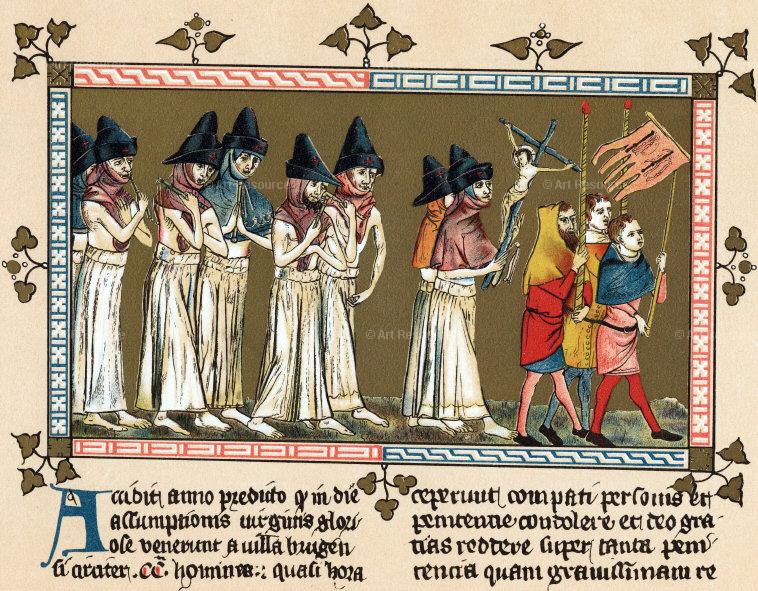 © Art Resource
© Art Resource
© Art Resource
Accidit anno predicto q in die
assumptionis uirginis glori
ose venerunt a villa brugen
si circiter .CC. homines : quasi hora
ceperunt compati personis et
penitentie condolere et deo gra
cias reddere super tanta peni
tencia quam grauissimam re